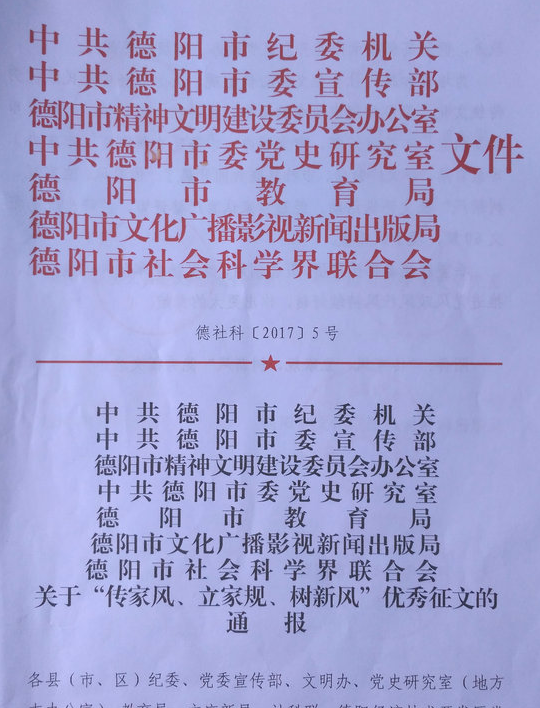 中共德阳市纪委机关
中共德阳市委宣传部
德阳市精神文明建设委员会办公室
中共德阳市委党史研究室 文件
德阳市教育局
德阳市文化广播影视新闻出版局
德阳市社会科学界联合会
德社科〔2017〕5号
中共德阳市纪委机关
中共德阳市委宣传部
德阳市精神文明建设委员会办公室
中共德阳市委党史研究室
德阳市教育局
德阳市文化广播影视新闻出版局
德阳市社会科学界联合会
关于“传家风、立家规、树新风”优秀征文的
通报
各县（市、区）纪委、党委宣传部、文明办、党史研究室（地方